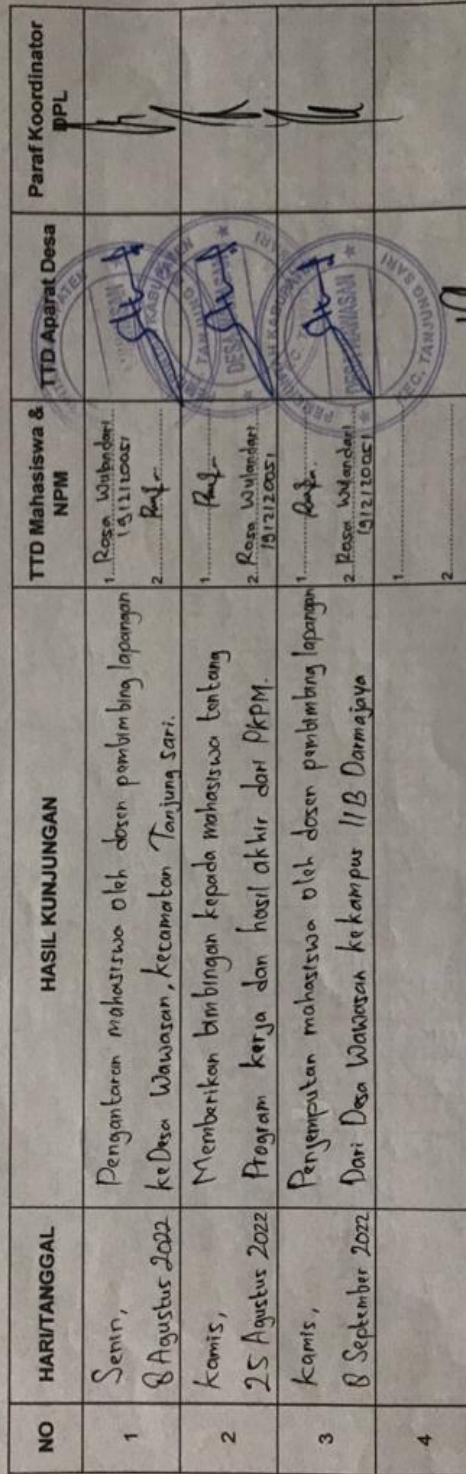 NO
HARI/TANGGAL
HASIL KUNJUNGAN
TTD Mahasiswa &
NPM
TTD Aparat Desa
Paraf Koordinator
DPL
1
Senin,
8 Agustus 2022
Pengantaran mahasiswa oleh dosen pembimbing lapangan
ke Desa Wawasan, kecamatan Tanjung sari.
1. Rosa Wulandari
1912120051
2.
2
Kamis,
25 Agustus 2022
Memberikan bimbingan kepada mahasiswa tentang
Program kerja dan hasil akhir dari PKPM.
1.
2. Rosa Wulandari
1912120051
3
Kamis,
8 September 2022
Penjemputan mahasiswa oleh dosen pembimbing lapangan
Dari Desa Wawasan ke kampus IIB Darmajaya
1.
2. Rosa Wulandari
1912120051
DESA WAWASAN
KEC. TANJUNG SARI
4
1.
2.